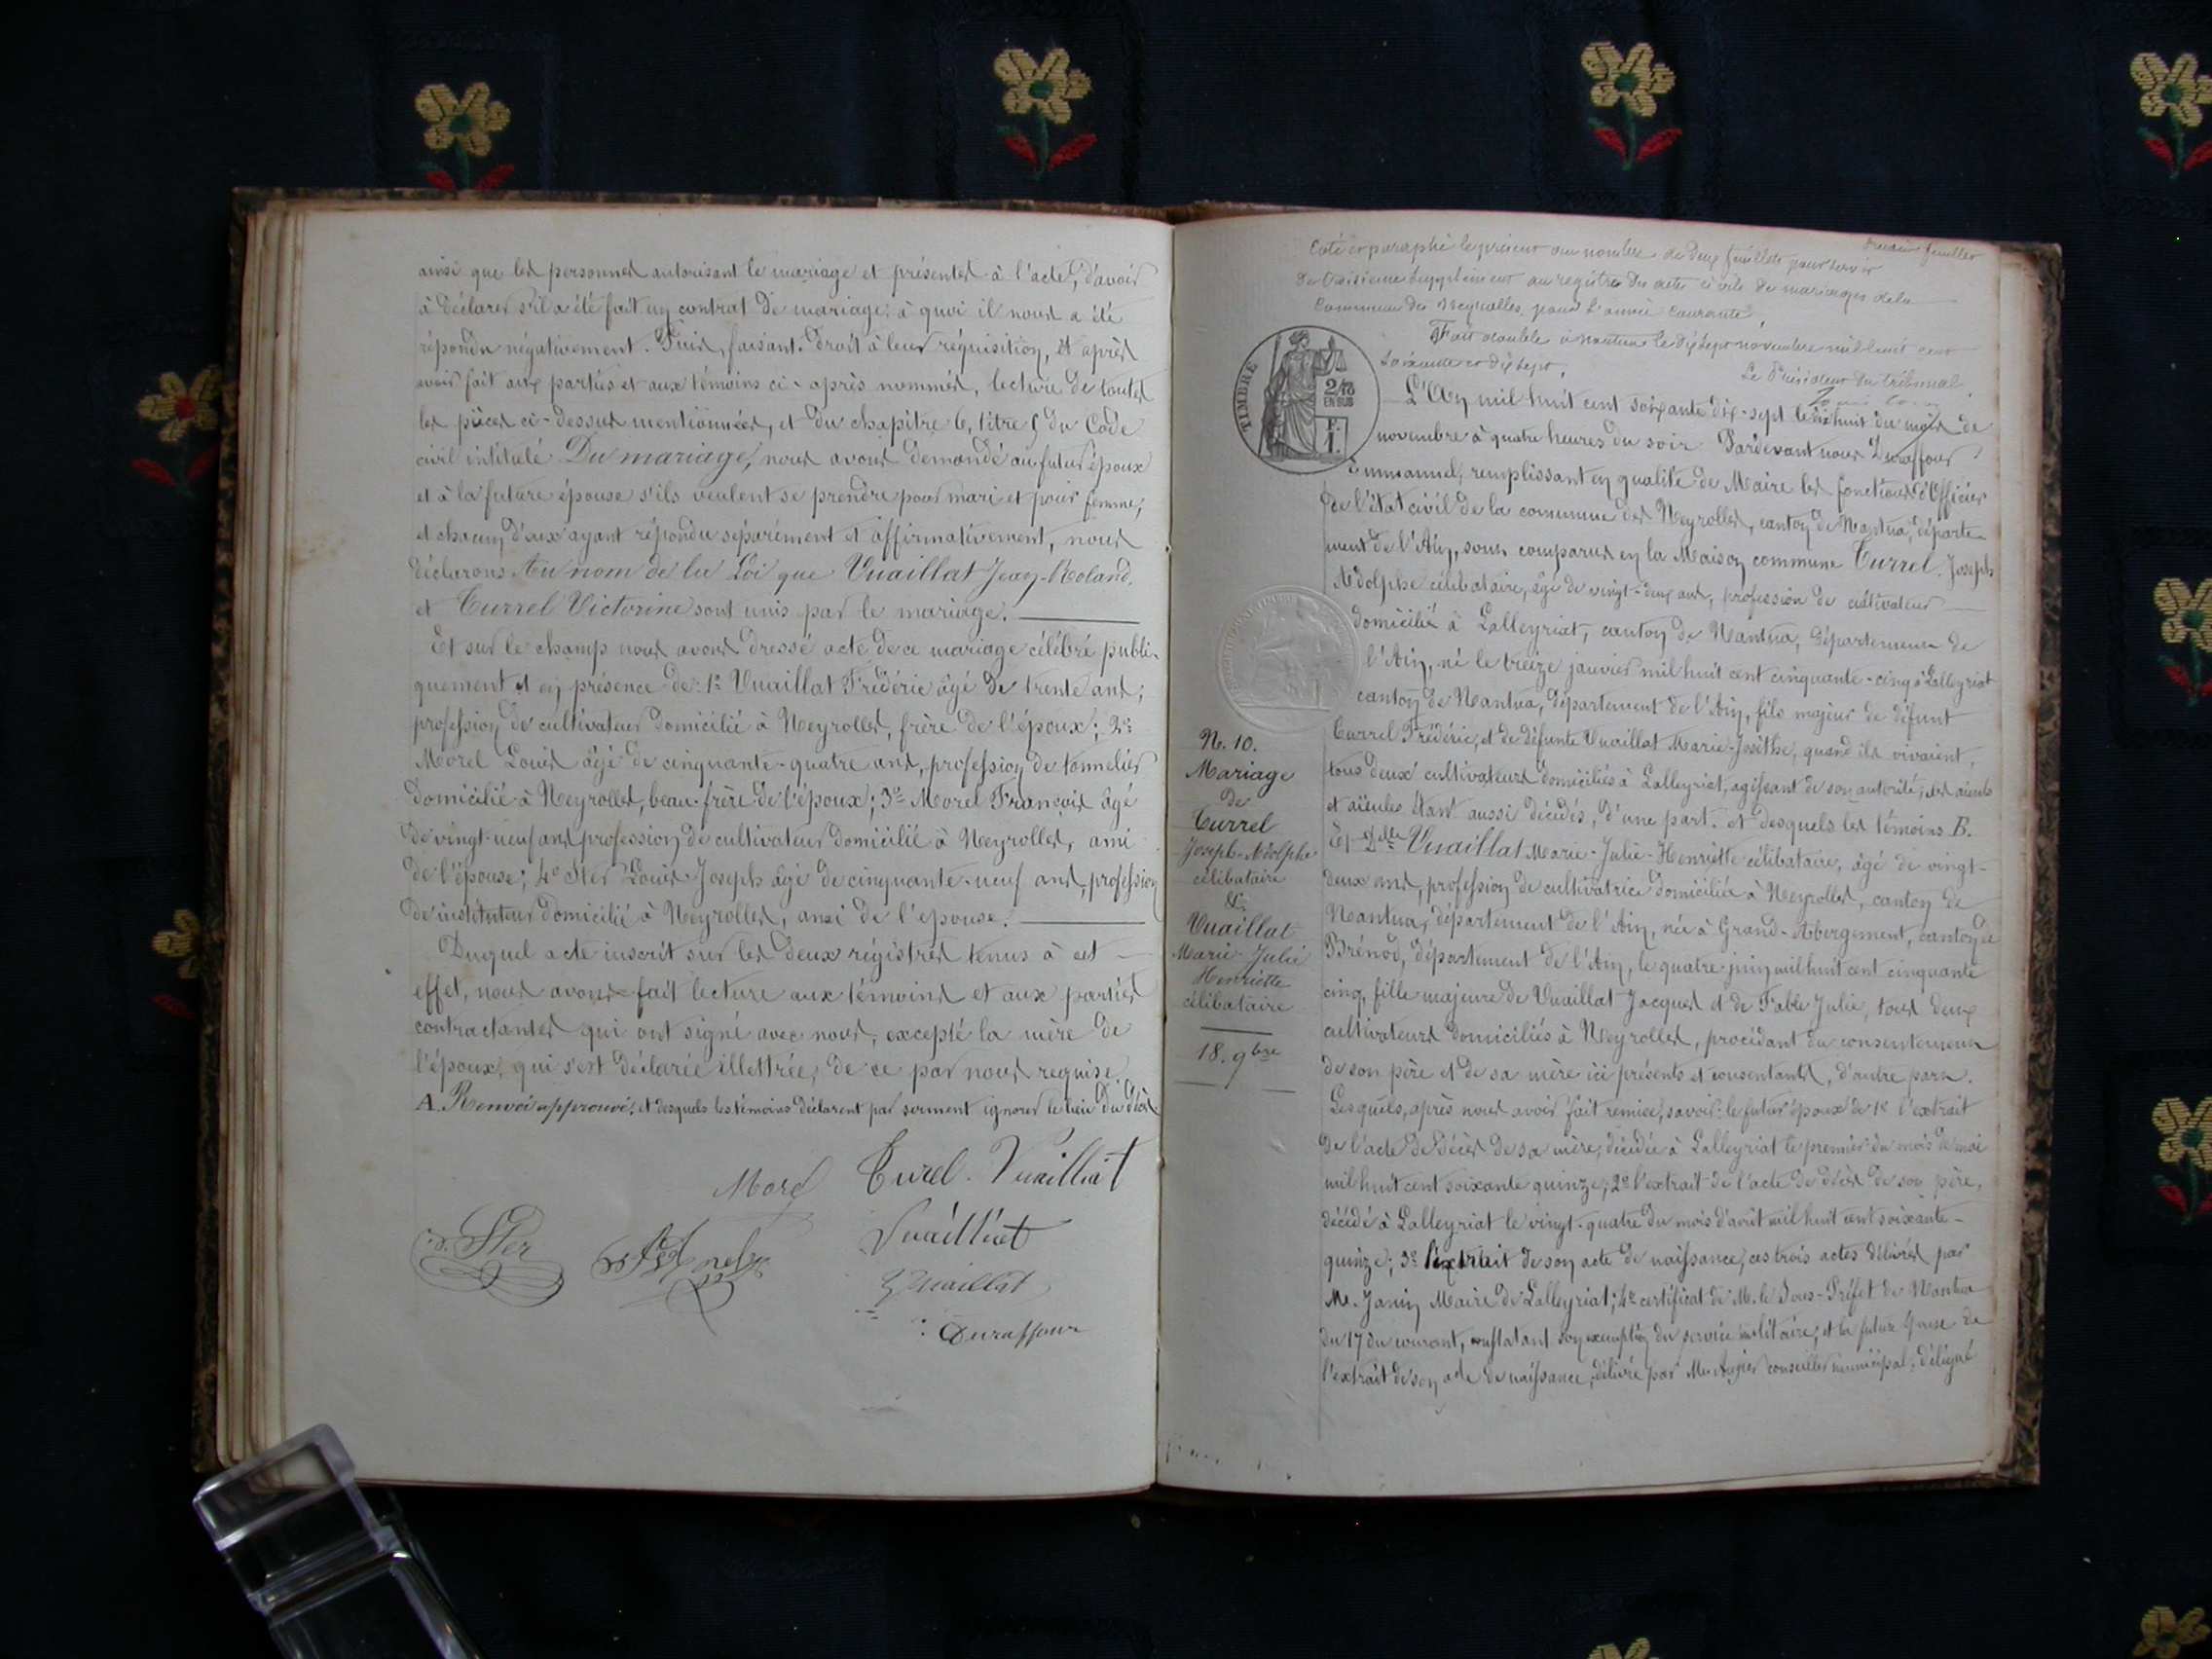 ainsi que les personnes autorisant le mariage et présentes à l'acte, d'avoir
à déclarer s'il a été fait un contrat de mariage: à quoi il nous a été
répondu négativement. Puis, faisant droit à leur réquisition, et après
avoir fait aux parties et aux témoins ci-après nommés, lecture de toutes
les pièces ci-dessus mentionnées, et du chapitre 6, titre 5 du Code
civil intitulé Du mariage, nous avons demandé au futur époux
et à la future épouse s'ils veulent se prendre pour mari et pour femme,
et chacun d'eux ayant répondu séparément et affirmativement, nous
déclarons Au nom de la Loi que Vuaillat Jean-Roland,
et Turrel Victorine sont unis par le mariage.
Et sur le champ nous avons dressé acte de ce mariage célébré publi-
quement et en présence de: 1º Vuaillat Frédéric âgé de trente ans;
profession de cultivateur domicilié à Neyrolles, frère de l'époux; 2º
Morel Louis âgé de cinquante-quatre ans, profession de tonnelier
domicilié à Neyrolles, beau-frère de l'époux; 3º Morel François âgé
de vingt-neuf ans profession de cultivateur domicilié à Neyrolles, ami
de l'épouse; 4º Ster Louis-Joseph âgé de cinquante-neuf ans, profession
de instituteur domicilié à Neyrolles, ami de l'épouse.
Duquel acte inscrit sur les deux régistres tenus à cet
effet, nous avons fait lecture aux témoins et aux parties
contractantes qui ont signé avec nous, excepté la mère de
l'époux, qui s'est déclarée illettrée, de ce par nous requise.
A Renvoi approuvé: et desquels les témoins déclarent par serment ignorer le lieu du décès
Morel Turel. Vuailliat
Ster Vuailliat
Vuaillat
Duraffour
Coté et paraphé le présent au nombre de deux feuillets pour servir feuillet
de troisième supplément au registre des actes civils de mariages de la
Commune des Neyrolles, pour l'année courante,
Fait double à Nantua le dix sept novembre mil huit cent
soixante et dix sept,
Le Président du tribunal,
TIMBRE
2/10
EN SUS
F.
1.
L'An mil huit cent soixante dix-sept le dix huit du mois de
novembre à quatre heures du soir Pardevant nous Duraffour
Emmanuel, remplissant en qualité de Maire les fonctions d'Officier
de l'état civil de la commune des Neyrolles, canton de Nantua, départe-
ment de l'Ain, sont comparus en la Maison commune Turrel Joseph
Adolphe célibataire, âgé de vingt-deux ans, profession de cultivateur
domicilié à Lalleyriat, canton de Nantua, département de
l'Ain, né le treize janvier mil huit cent cinquante-cinq à Lalleyriat
canton de Nantua, département de l'Ain, fils majeur de défunt
Turrel Frédéric, et de défunte Vuaillat Marie-Josèthe, quand ils vivaient,
tous deux cultivateurs domiciliés à Lalleyriat, agissant de son autorité, ses aïeuls
et aïeules étant aussi décédés, d'une part. et desquels les témoins B.
Et Dlle Vuaillat Marie-Julie-Henriette célibataire, âgé de vingt-
deux ans, profession de cultivatrice domiciliée à Neyrolles, canton de
Nantua, département de l'Ain, née à Grand-Abergement, canton de
Brénod, département de l'Ain, le quatre juin mil huit cent cinquante
cinq, fille majeure de Vuaillat Jacques et de Fabre Julie, tous deux
cultivateurs domiciliés à Neyrolles, procédant du consentement
de son père et de sa mère ici présents et consentants, d'autre part.
Lesquels, après nous avoir fait remise, savoir: le futur époux de 1º l'extrait
de l'acte de décès de sa mère, décédée à Lalleyriat le premier du mois de mai
mil huit cent soixante quinze; 2º l'extrait de l'acte de décès de son père,
décédé à Lalleyriat le vingt-quatre du mois d'avril mil huit cent soixante-
quinze; 3º l'extrait de son acte de naissance, ces trois actes délivrés par
M. Janin Maire de Lalleyriat; 4º certificat de M. le Sous-Préfet de Nantua
du 17 du courant, constatant son exemption du service militaire; et la future épouse de
l'extrait de son acte de naissance, délivré par M. conseiller municipal, délégué
N. 10.
Mariage
de
Turrel
Joseph-Adolphe
célibataire
&
Vuaillat
Marie-Julie
Henriette
célibataire
18. 9bre